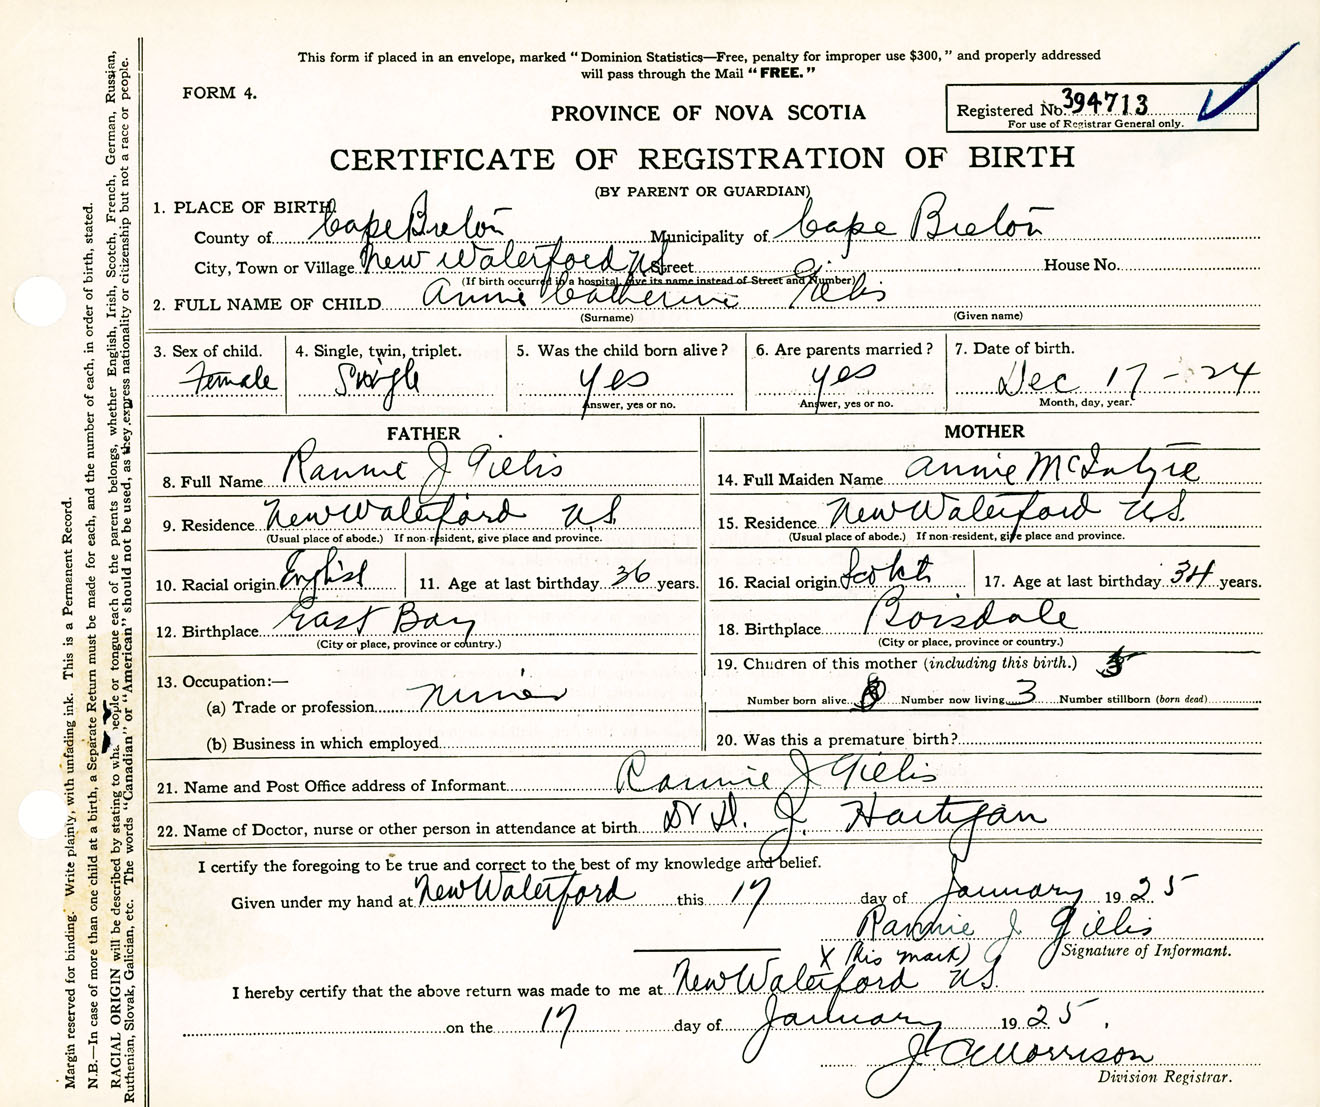 This form if placed in an envelope, marked "Dominion Statistics—Free, penalty for improper use $300," and properly addressed
will pass through the Mail "FREE."
FORM 4.
PROVINCE OF NOVA SCOTIA
Registered No. 394713
For use of Registrar General only.
CERTIFICATE OF REGISTRATION OF BIRTH
(BY PARENT OR GUARDIAN)
1. PLACE OF BIRTH
County of Cape Breton Municipality of Cape Breton
City, Town or Village New Waterford N.S. Street House No.
(If birth occurred in a hospital, give its name instead of Street and Number)
2. FULL NAME OF CHILD Annie Catherine Gillis
(Surname) (Given name)
3. Sex of child. 4. Single, twin, triplet. 5. Was the child born alive? 6. Are parents married? 7. Date of birth.
Female Single yes yes Dec 17-24
Answer, yes or no. Answer, yes or no. Month, day, year.
FATHER MOTHER
8. Full Name Rannie J Gillis 14. Full Maiden Name Annie McIntyre
9. Residence New Waterford N.S. 15. Residence New Waterford N.S.
(Usual place of abode.) If non-resident, give place and province. (Usual place of abode.) If non-resident, give place and province.
10. Racial origin English 11. Age at last birthday 36 years. 16. Racial origin 17. Age at last birthday 34 years.
12. Birthplace East Bay 18. Birthplace Boisdale
(City or place, province or country.) (City or place, province or country.)
19. Children of this mother (including this birth.)
13. Occupation:—
Number born alive Number now living 3 Number stillborn (born dead)
(a) Trade or profession
(b) Business in which employed 20. Was this a premature birth?
21. Name and Post Office address of Informant Rannie J Gillis
22. Name of Doctor, nurse or other person in attendance at birth Dr H. J. Hartigan
I certify the foregoing to be true and correct to the best of my knowledge and belief.
Given under my hand at New Waterford this 17 day of January 1925
Rannie J Gillis
X (his mark) Signature of Informant.
I hereby certify that the above return was made to me at New Waterford N.S.
on the 17 day of January 1925.
J C Morrison
Division Registrar.
Margin reserved for binding. Write plainly, with unfading ink. This is a Permanent Record.
N.B.—In case of more than one child at a birth, a Separate Return must be made for each, and the number of each, in order of birth, stated.
RACIAL ORIGIN will be described by stating to what people or tongue each of the parents belongs, whether English, Irish, Scotch, French, German, Russian,
Ruthenian, Slovak, Galician, etc. The words "Canadian" or "American" should not be used, as they express nationality or citizenship but not a race or people.